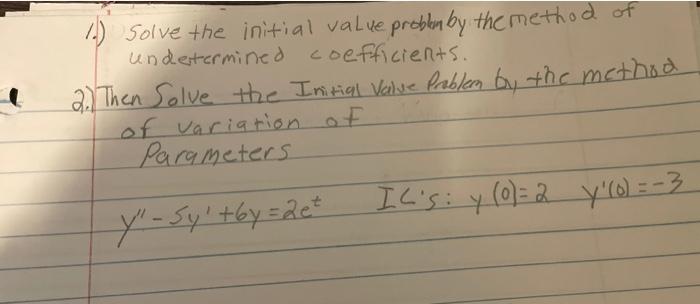 1.) Solve the initial value problem by the method of
undetermined coefficients.
2.) Then Solve the Initial Value Problem by the method
of variation of
Parameters
y'' - 5y' + 6y = 2e^t   IC's: y(0)=2   y'(0)=-3